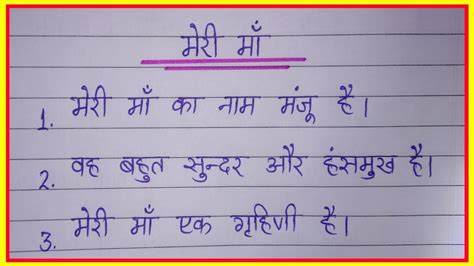 मेरी माँ
1. मेरी माँ का नाम मंजू है।
2. वह बहुत सुन्दर और हंसमुख है।
3. मेरी माँ एक गृहिणी है।